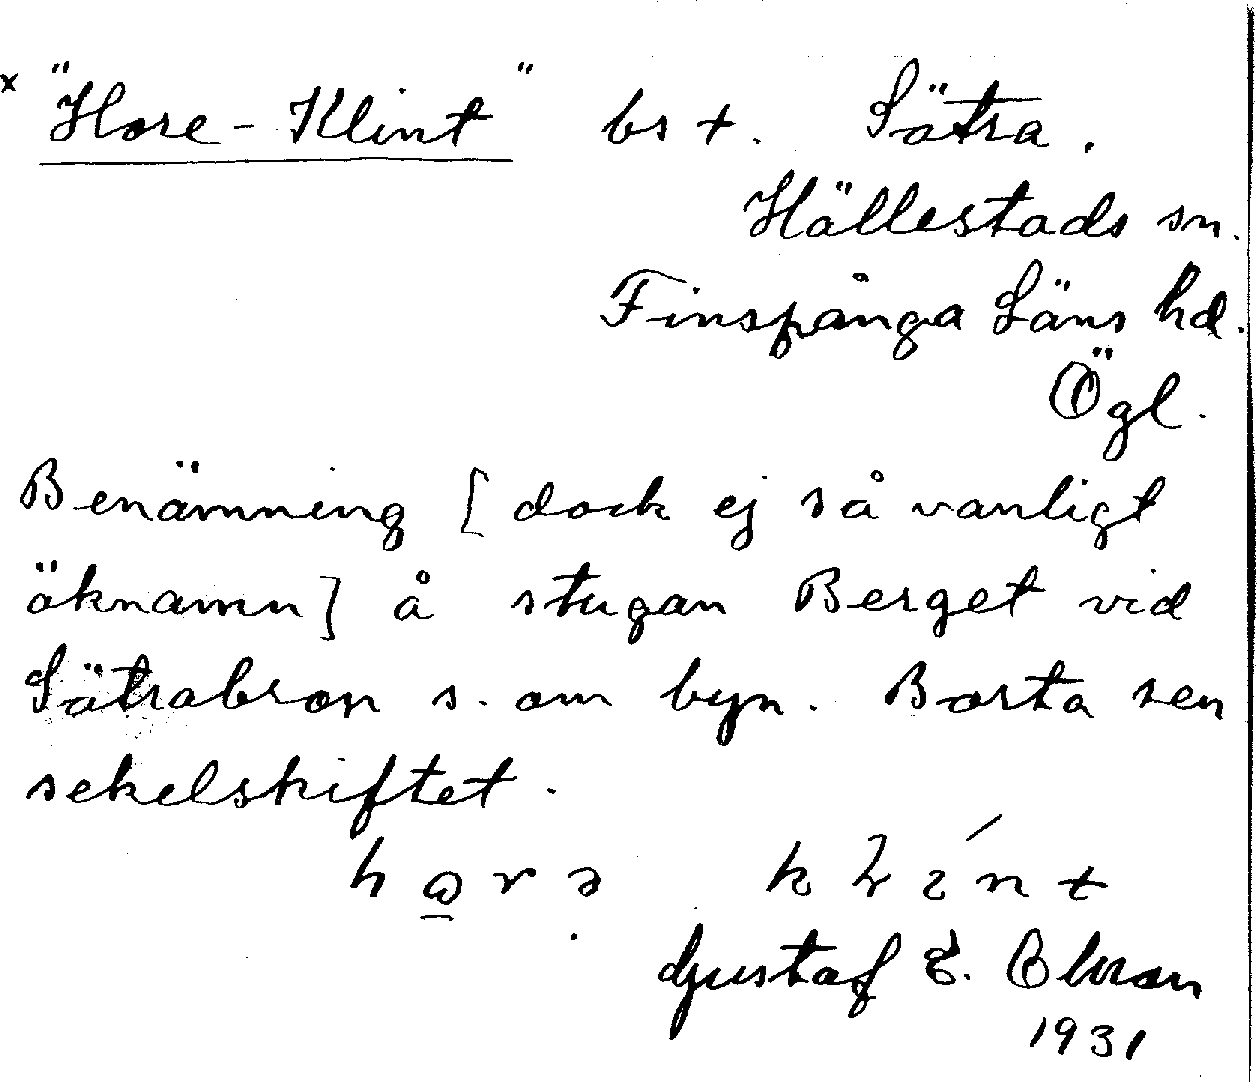 x "Hore-Klint" bst. Sätra.
Hällestads sn.
Finspånga Läns hd.
Ögl.
Benämning [dock ej så vanligt
öknamn] å stugan Berget vid
Sätrabron s. om byn. Borta sen
sekelskiftet.
Gustaf E.
1931